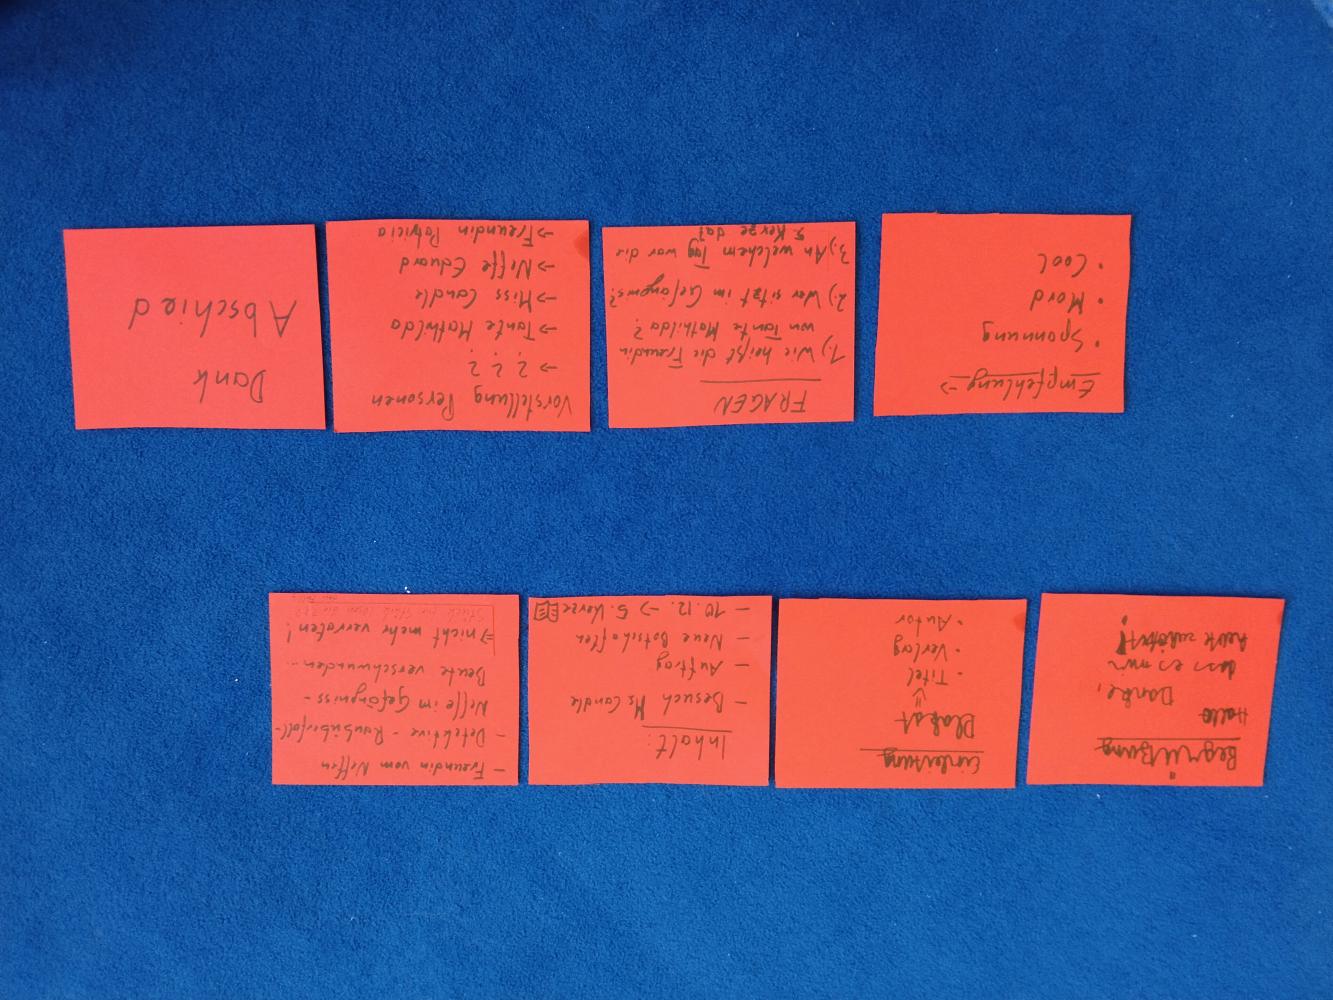 Begrüßung
Hallo
Danke,
dass es mir
heute zuhört!
Einleitung
Plakat
⇓
• Titel
• Verlag
• Autor
Inhalt:
– Besuch Ms Candle
– Auftrag
– Neue Botschaften
– 10.12. → 5. Kerze
– Freundin vom Neffen
– Detektive - Raubüberfall -
Neffe im Gefängniss -
Beute verschwunden...
⇒ nicht mehr verraten!
Empfehlung →
• Spannung
• Mord
• Cool
FRAGEN
1.) Wie heißt die Freundin
von Tante Mathilda?
2.) Wer sitzt im Gefängnis?
3.) An welchem Tag war die
5. Kerze da?
Vorstellung Personen
→ ? ? ?
→ Tante Mathilda
→ Miss Candle
→ Neffe Eduard
→ Freundin Patricia
Dank
Abschied